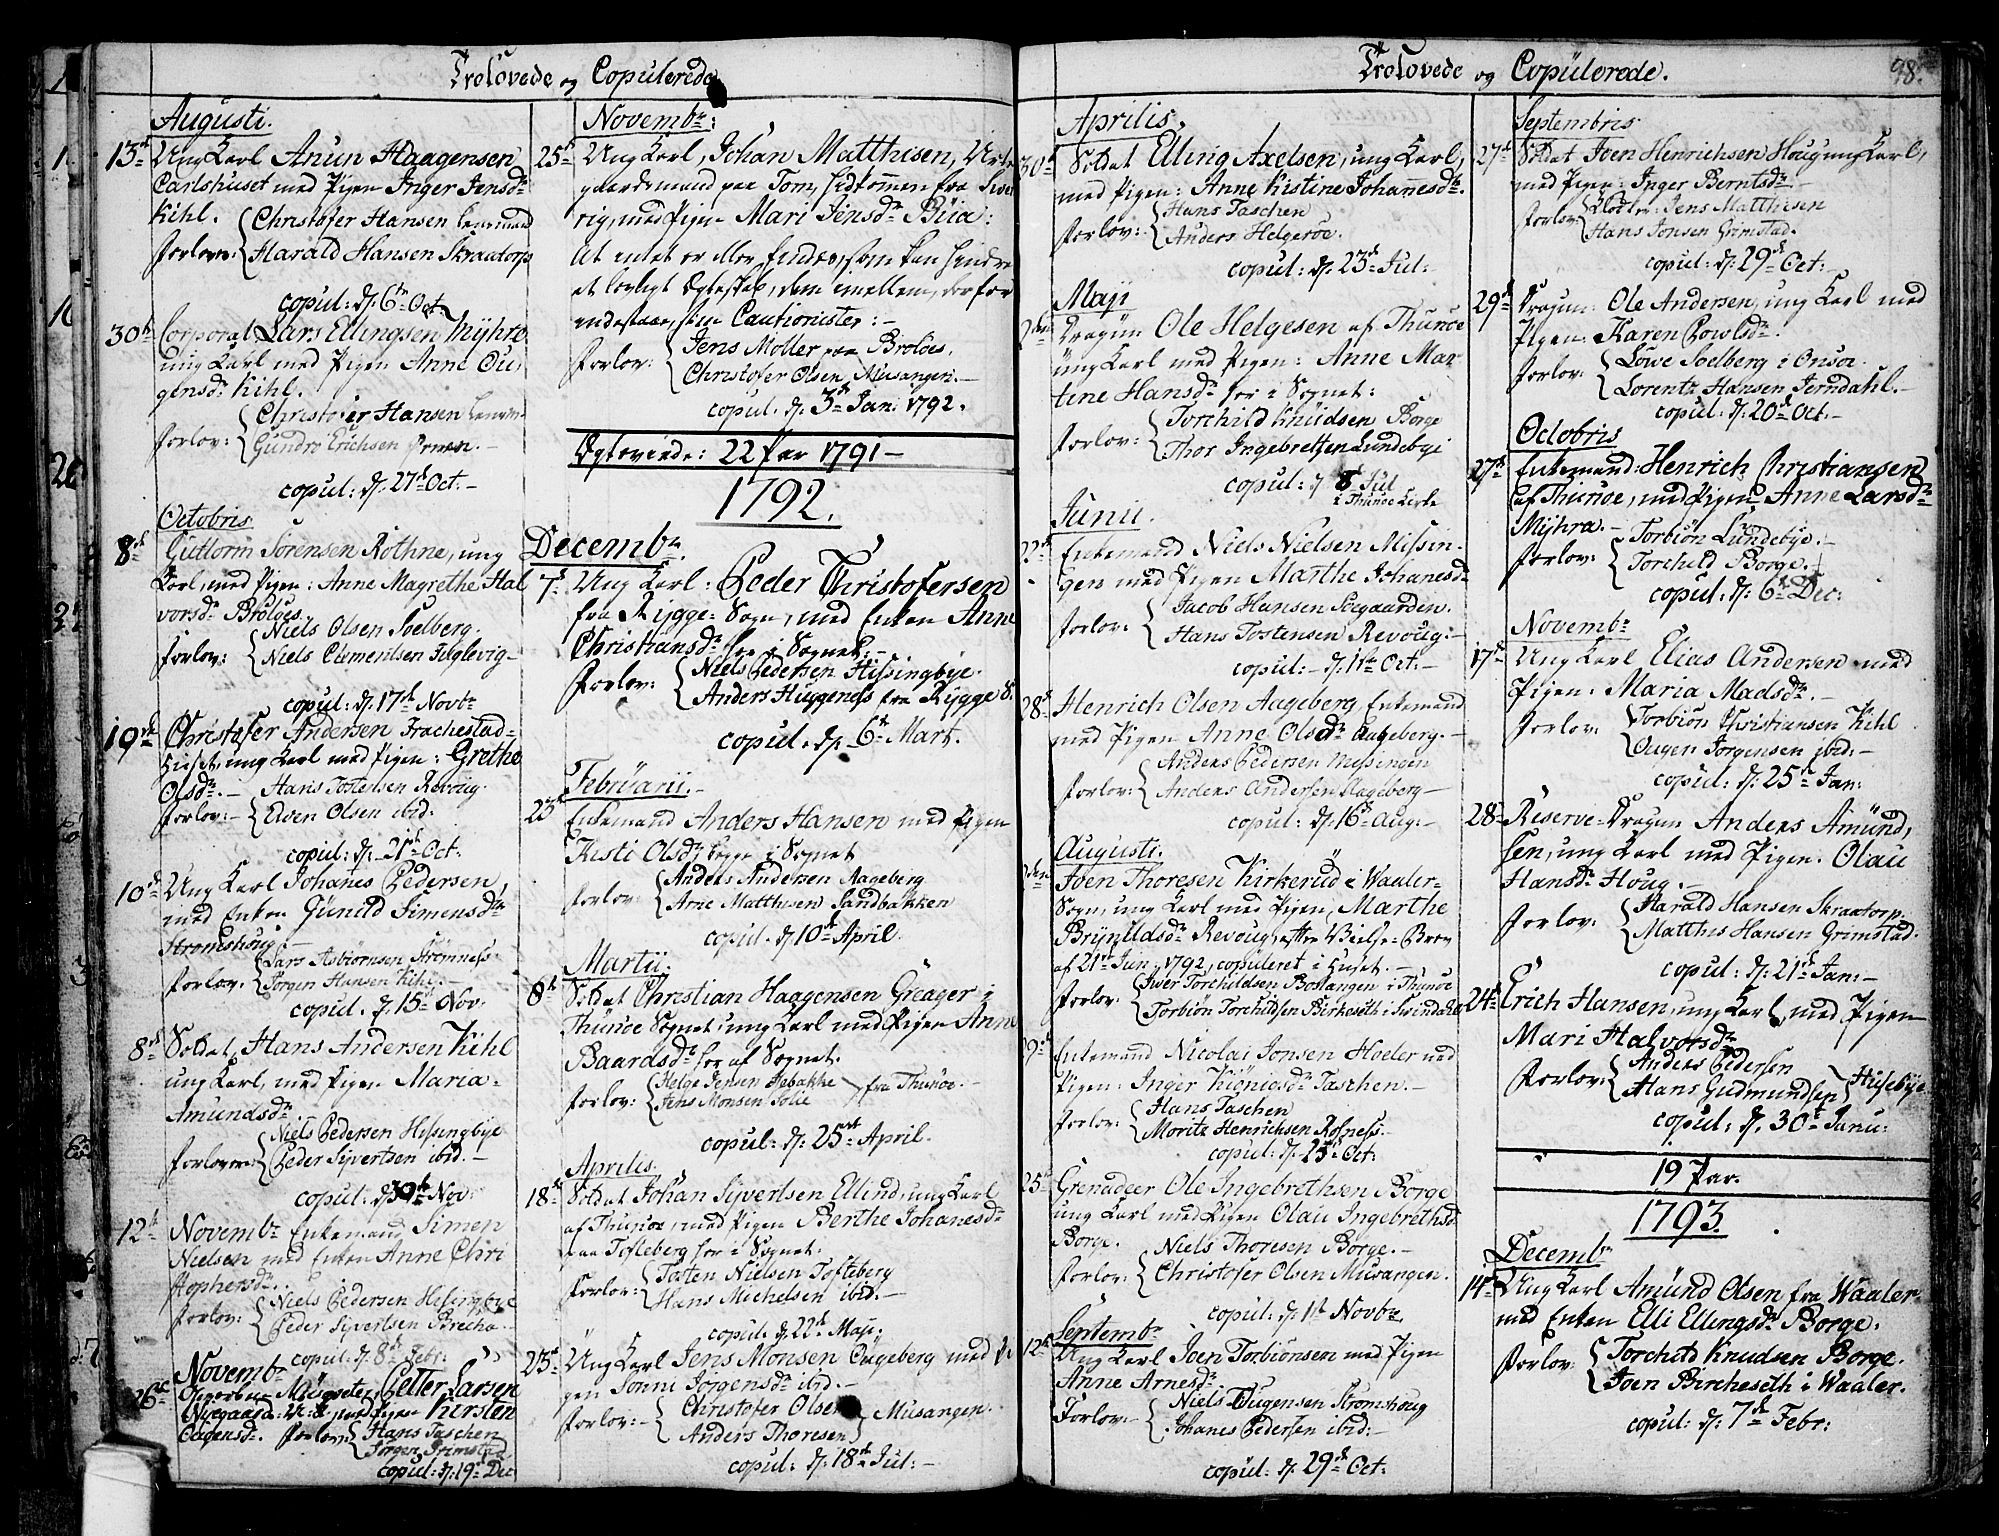 Trolovede og Copulerede
Augusti.
13de Ung Karl Anun Haagensen
Carlshuset med Pigen Inger Jensdtr
Kihl.
Forlover: Christofer Hansen Lensmand
Harald Hansen Skraatorp
copul: d: 6te Oct
30te Corporal Lars Ellingsen Myhre
ung Karl med Pigen Anne Ou-
gensdr Kihl.
Christofer Hansen Lensm:
Forlov: Gundro Erichsen
copul: d: 27de Oct:
Octobris
8de Guttorm Sorensen Rothne, ung
Karl, med Pigen: Anne Magrethe Hal
vorsdr Broloes.
Forlov: Niels Olsen Soelberg.
Niels Clementsen Fuglevig
copul: d: 17de Novbr
19de Christofer Andersen Frachestad-
Huset, ung Karl med Pigen: Grethe
Olsdr. Hans Tostensen Revoug.
Forlov: Even Olsen ibid:
copul: d: 21de Oct:
10de Ung Karl Johanes Pedersen,
med Enken Gunild Simensdr
Stromshoug
Lars Asbiornsen Strømness
Forlov. Jorgen Hansen Kihl.
copul. d. 15de Nov:
8de Soldat Hans Andersen Kihl
ung Karl, med Pigen Maria
Amundsdr.
Niels Pedersen Hessingbye
Forlovere: Peder Syvertsen ibid.
copul: d: 30te Nov:
12te Novembr Enkemand Simen
Nielsen med Enken Anne Chri
stophersdr.
Niels Pedersen Hessingbye
Forlov: Peder Syvertsen Brecha
copul: d: 8de Febr:
Novembr
26de Petter Larsen
Nyegaard med Pigen Kirsten
Oagensdr. Forlov: Hans Taschen
Jørgen Grimstad
copul: d: 19de Dec
Novembr:
25de Ung Karl, Johan Matthisen, Urte
gaardsmand paa Tom, hidkommen fra Sver
rig, med Pigen Mari Jensdr Büia:
At intet er eller findes, som kan hindre
et lovligt Egteskab, dem imellem, derfor
indestaae, som Cautionister:
Forlov: Jens Moller paa Broloes.
Christofer Olsen Musangen.
copul. d: 3de Jan: 1792.
Egteviede: 22 Par 1791
1792.
Decembr.
7de Ung Karl: Peder Christofersen
fra Rygge-Sogn, med Enken Anne
Christiansdr her i Sognet.
Forlov: Niels Pedersen Hissingbye.
Anders Huggenes fra Rygge S.
copul. d. 6te Mart.
Februarii.
23de Enkemand Anders Hansen med Pigen
Kisti Olsdr begge i Sognet
Forlov: Anders Andersen Aageberg
Arne Matthisen Sandbakken
copul. d. 10de April.
Martii.
8de Soldat Christian Haagensen Greager i
Thunøe Sognet ung Karl med Pigen Anne
Baardsdr her af Sognet.
Forlov: Helge Jensen Jebakke
Jens Monsen Solie fra Thunøe.
copul: d: 25de April.
Aprilis.
18de Soldat Johan Syvertsen Ellind, ung Karl
af Thunøe, med Pigen Berthe Johanesdr
paa Tofteberg her i Sognet.
Forlov: Tosten Nielsen Tofteberg
Hans Michelsen ibid:
copul d. 22de Maji
23de Ung Karl Jens Monsen Ougeberg med Pi
gen Sonni Jorgensdr ibid.
Forlov: Christofer Olsen
Anders Thoresen Musangen.
copul: d: 18de Jul:
Trolovede og Copulerede.
98.
Aprilis.
30te Soldat Elling Axelsen, ung Karl,
med Pigen: Anne Kistine Johanesdr.
Forlov: Hans Taschen
Anders Helgeroe.
copul: d: 23de Jul:
Maji
2den Dragun Ole Helgesen af Thunøe
ung Karl med Pigen: Anne Mar
tine Hansdr her i Sognet:
Forlov: Torchild Knudsen Borge
Thor Ingebretsen Lundebye
copul: d 8de Jul
i Thunøe Kirke
Junii.
22de Enkemand Niels Nielsen Missin-
gen med Pigen Marthe Johanesdr
Forlov: Jacob Hansen Soegaarden.
Hans Tostensen Revoug.
copul: d: 1ste Oct:
28de Henrich Olsen Aageberg Enkemand
med Pigen Anne Olsdr Aageberg.
Forlov: Anders Pedersen Missingen
Anders Andersen Aageberg
copul: d: 16de Aug:
Augusti.
2den Joen Thoresen Kirkerud i Waaler-
Sogn, ung Karl med Pigen, Marthe
Brynildsdr Revoug, efter Vielse-Brev
af 21de Jun: 1792, copuleret i Huset.
Forlov: Iver Torchildsen Bostangen i Thunøe
Torbiön Torchildsen Birkeseth i Svindahl
29de Enkemand Nicolai Jonsen Hoeler med
Pigen: Inger Kiönigsdr Taschen.
Forlov: Hans Taschen
Moritz Henrichsen Rosness.
copul: d: 25de Oct:
25de Grenadeer Ole Ingebrethsen Borge
ung Karl med Pigen Olau Ingebrethsdr
Borge.
Forlov: Niels Thoresen Borge.
Christofer Olsen Musangen.
copul: d: 1ste Novbr
Septembr
12te Ung Karl Joen Torbiönsen med Pigen
Anne Arnesdr.
Forlov: Niels Ougensen Stromshoug
Johanes Pedersen ibid:
copul: d: 29de Oct:
Septembris
27de Soldat Joen Henrichsen Houg ung Karl,
med Pigen: Inger Berntsdr.
Forlov: Klocker Jens Matthiesen
Hans Jonsen Grimstad.
copul: d: 29de Oct:
29de Dragun: Ole Andersen, ung Karl med
Pigen: Karen Powlsdr.
Forlov: Lowe Soelberg i Onsøe.
Lorentz Hansen Jerndahl.
copul: d: 20de Oct:
Octobris
27de Enkemand: Henrich Christiansen
af Thunøe, med Pigen Anne Larsdr
Myhra.
Forlov: Torbiön Lundebye.
Torchild Borge.
copul: d: 6te Dec:
Novembr
17de Ung Karl Elias Andersen med
Pigen: Maria Madsdr.
Forlov: Torbiön Christiansen Kihl
Ougen Jorgensen ibid:
copul: d: 25de Jan:
28de Reserve-Dragun Anders Amünd,
sen, ung Karl med Pigen: Olau
Hansdr Houg.
Forlov: Harald Hansen Skraatorp.
Matthis Hansen Grimstad.
copul: d: 21de Jan:
24de Erich Hansen, ung Karl, med Pigen
Mari Halvorsdr
Forlov: Anders Pedersen
Hans Gudmundsen Husebye
copul: d. 30te Janu:
19 Par.
1793.
Decembr
14de Ung Karl Amünd Olsen fra Waaler
med Enken Elli Ellingsdr Borge.
Forlov: Torchild Knudsen Borge.
Joen Bircheseth i Waaler.
copul: d: 7de Febr: